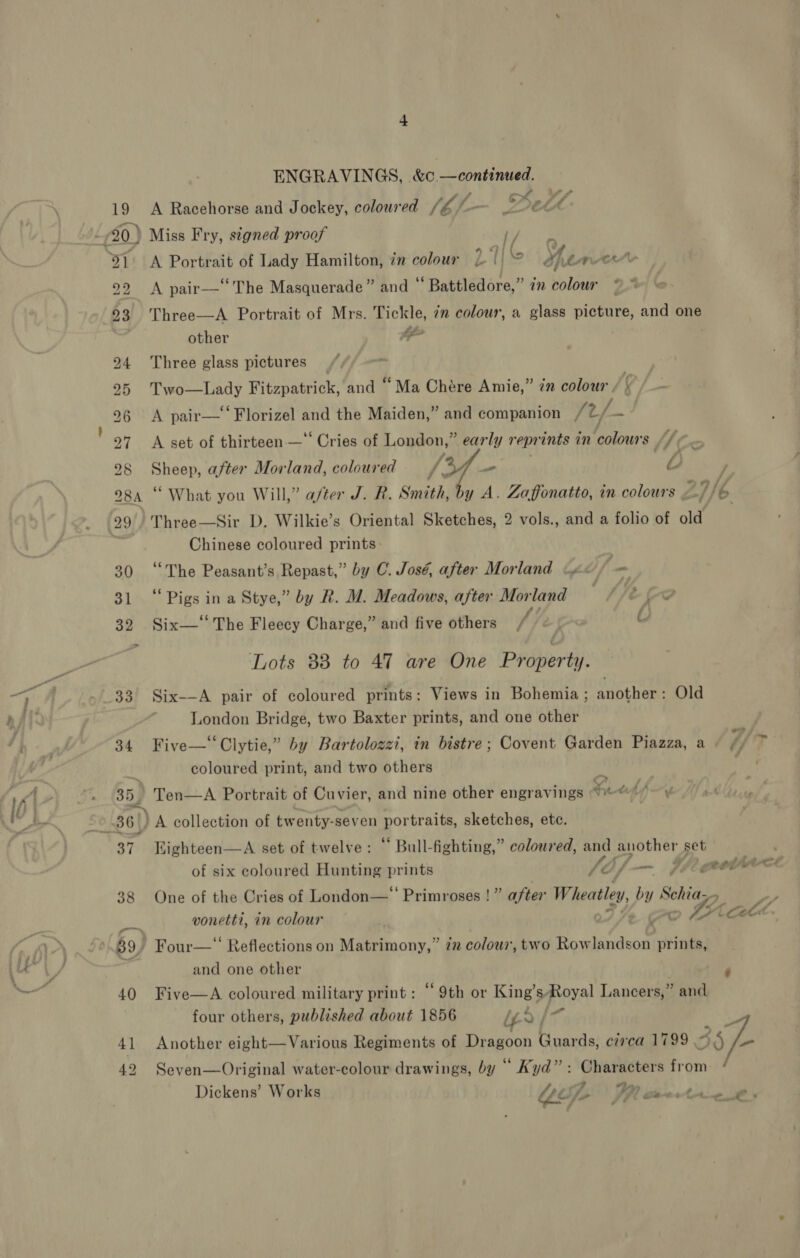 4
ENGRAVINGS, &c.—continued.
19 A Racehorse and Jockey, coloured 16/— Bell
20 Miss Fry, signed proof
21 A Portrait of Lady Hamilton, in colour 27/6 Spencer
22 A pair—“The Masquerade” and “Battledore,” in colour
23 Three—A Portrait of Mrs. Tickle, in colour, a glass picture, and one
other
24 Three glass pictures
25 Two—Lady Fitzpatrick, and “Ma Chère Amie,” in colour
26 A pair—“Florizel and the Maiden,” and companion 12/—
27 A set of thirteen—“Cries of London,” early reprints in colours
28 Sheep, after Morland, coloured
28A “What you Will,” after J. R. Smith, by A. Zaffonatto, in colours 27/6
29 Three—Sir D. Wilkie’s Oriental Sketches, 2 vols., and a folio of old
Chinese coloured prints
30 “The Peasant’s Repast,” by C. José, after Morland
31 “Pigs in a Stye,” by R. M. Meadows, after Morland
32 Six—“The Fleecy Charge,” and five others
Lots 33 to 47 are One Property.
33 Six—A pair of coloured prints: Views in Bohemia; another: Old
London Bridge, two Baxter prints, and one other
34 Five—“Clytie,” by Bartolozzi, in bistre; Covent Garden Piazza, a
coloured print, and two others
35 Ten—A Portrait of Cuvier, and nine other engravings
36 A collection of twenty-seven portraits, sketches, etc.
37 Eighteen—A set of twelve: “Bull-fighting,” coloured, and another set
of six coloured Hunting prints
38 One of the Cries of London—“Primroses!” after Wheatley, by Schia-
vonetti, in colour
39 Four—“Reflections on Matrimony,” in colour, two Rowlandson prints,
and one other
40 Five—A coloured military print: “9th or King’s Royal Lancers,” and
four others, published about 1856
41 Another eight—Various Regiments of Dragoon Guards, circa 1799
42 Seven—Original water-colour drawings, by “Kyd”: Characters from
Dickens’ Works